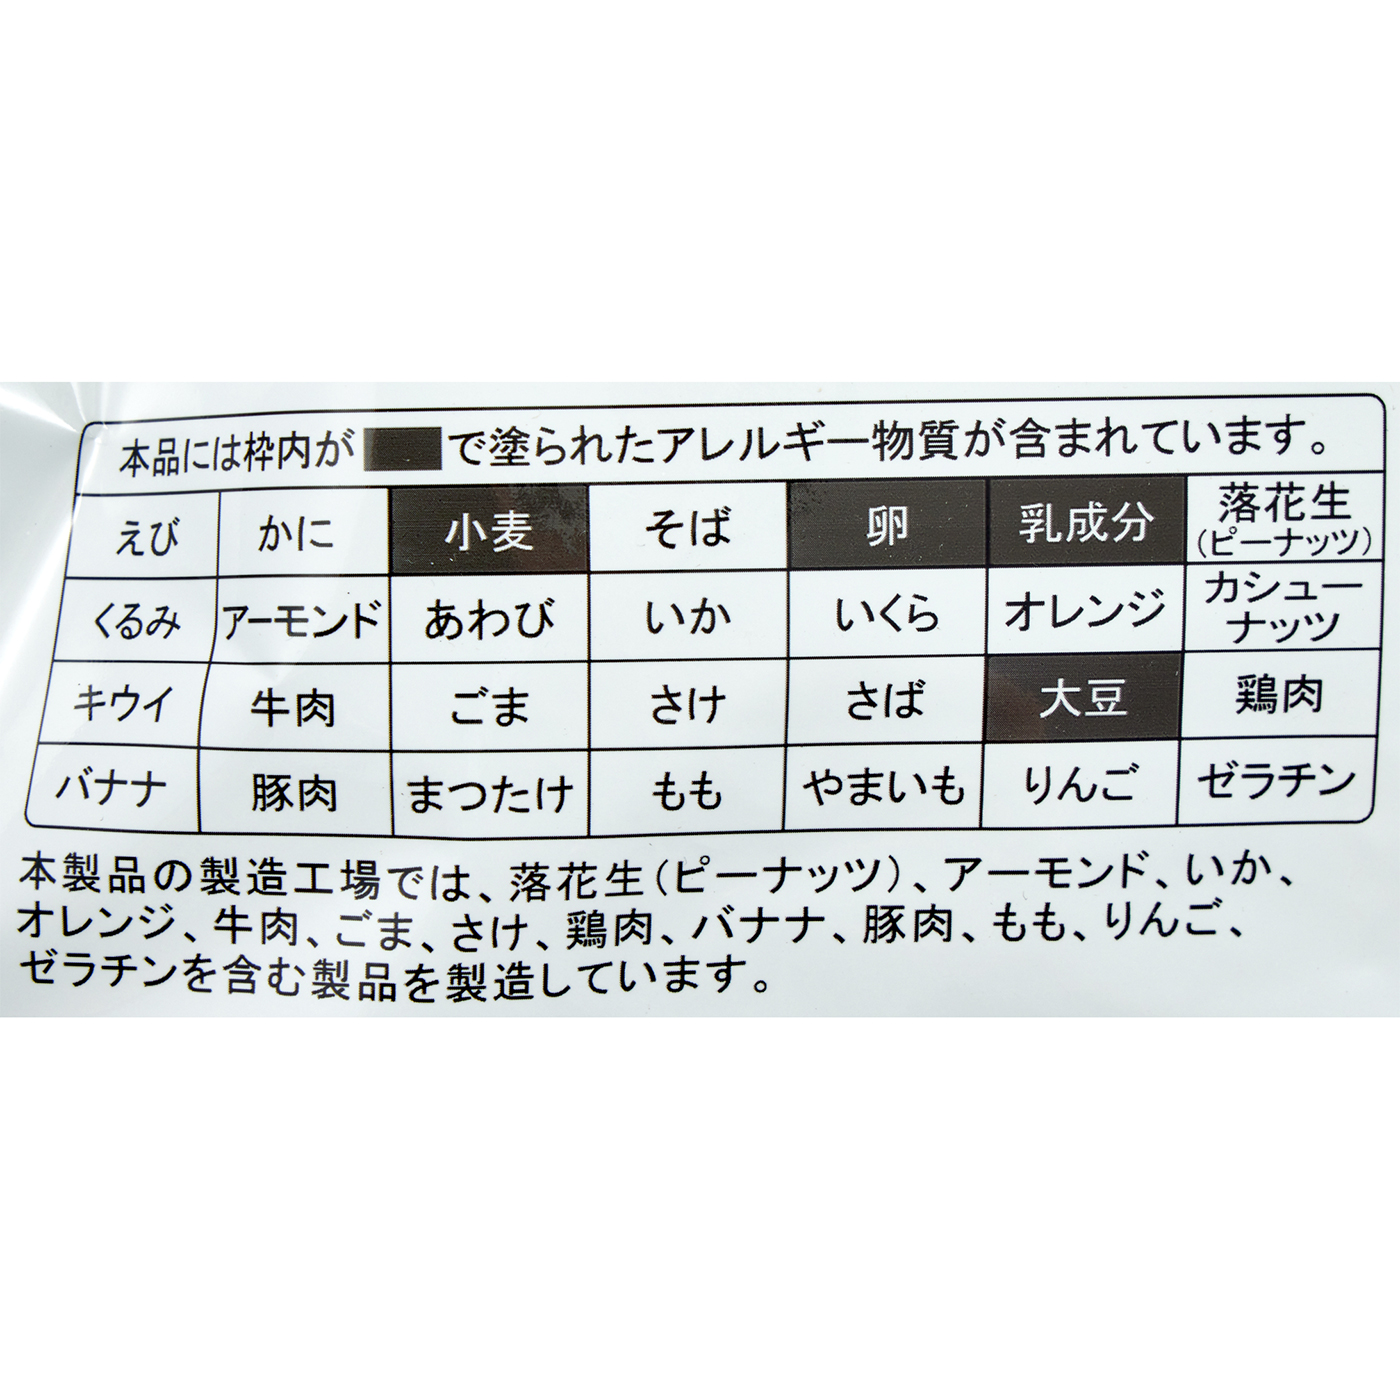 本品には枠内が■で塗られたアレルギー物質が含まれています。
えび かに 小麦 そば 卵 乳成分 落花生
(ピーナッツ)
くるみ アーモンド あわび いか いくら オレンジ カシュー
ナッツ
キウイ 牛肉 ごま さけ さば 大豆 鶏肉
バナナ 豚肉 まつたけ もも やまいも りんご ゼラチン
本製品の製造工場では、落花生(ピーナッツ)、アーモンド、いか、
オレンジ、牛肉、ごま、さけ、鶏肉、バナナ、豚肉、もも、りんご、
ゼラチンを含む製品を製造しています。